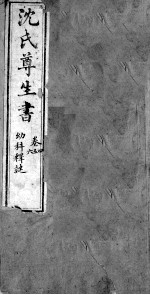 沈氏尊生書
卷六
幼科釋謎